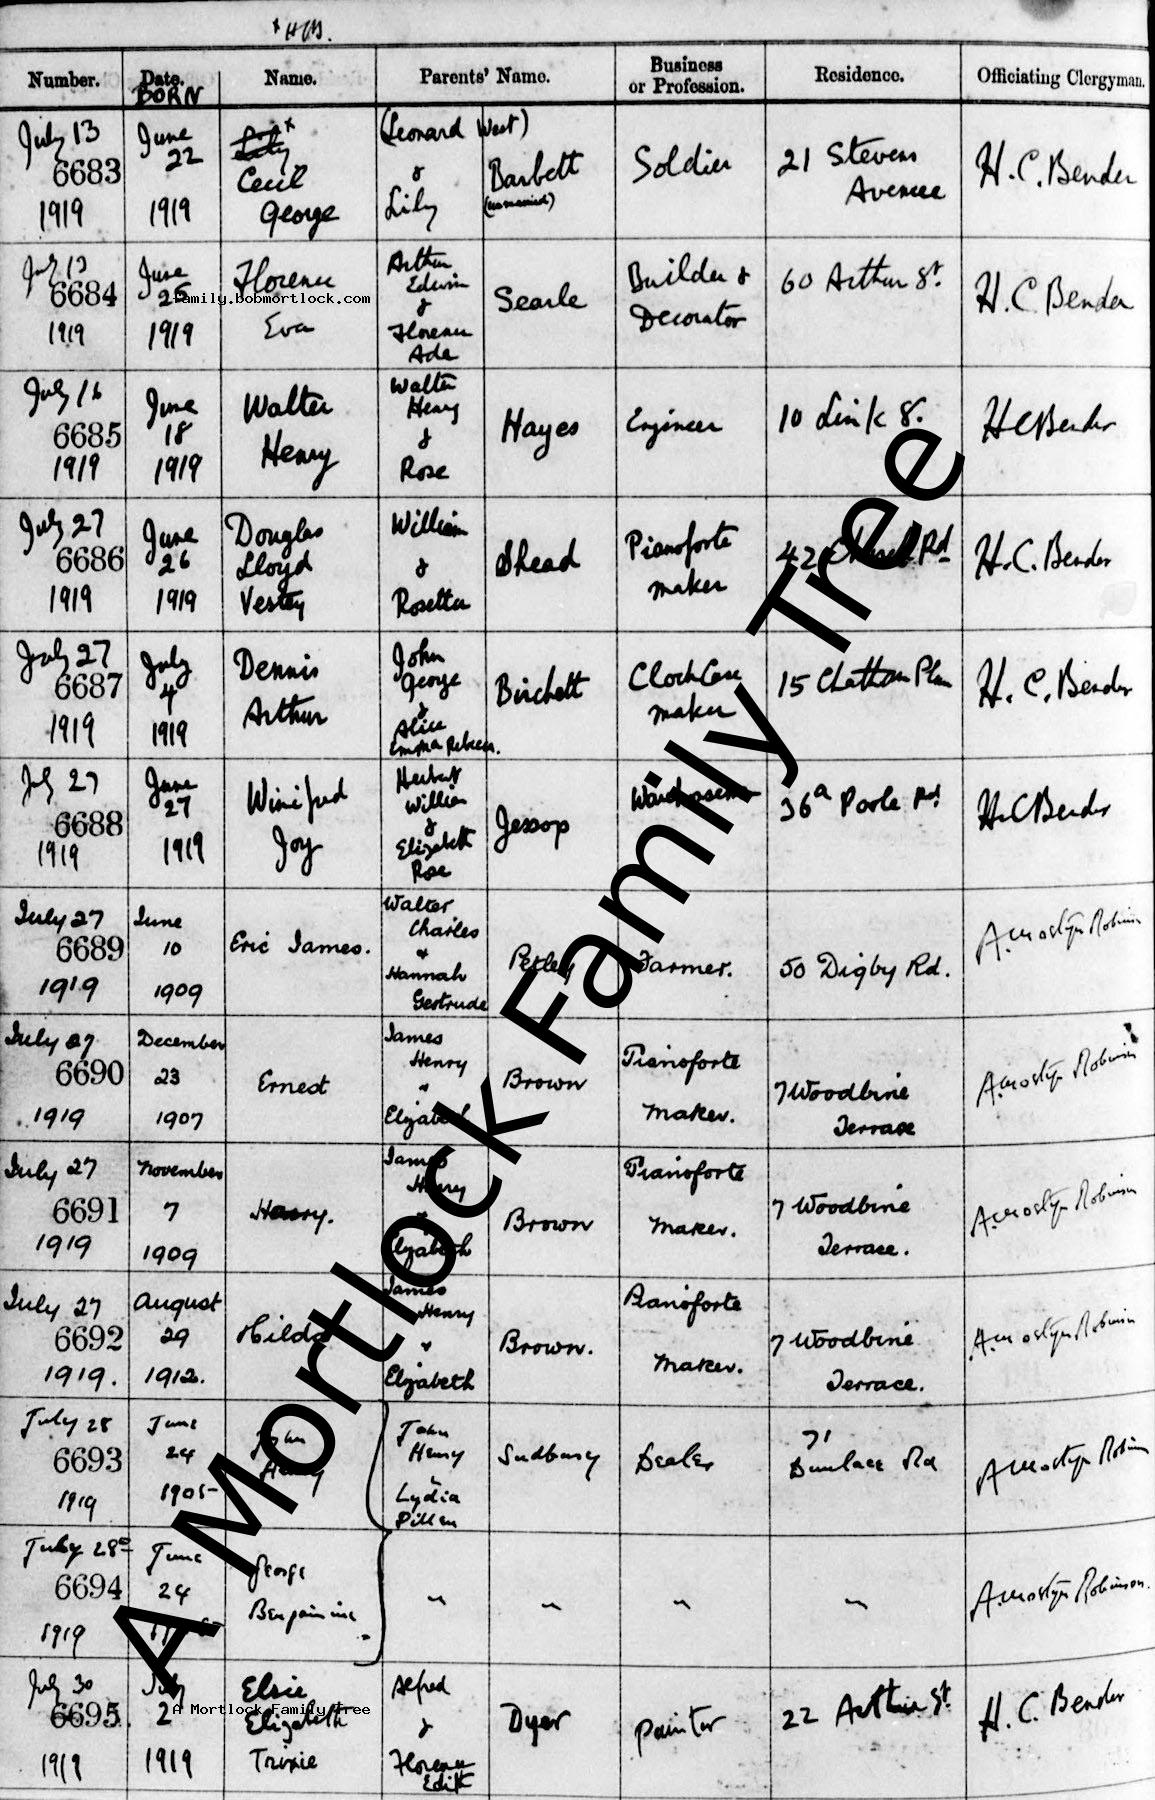 * HCB.
Number. Date. Name. Parents' Name. Business or Profession. Residence. Officiating Clergyman.
BORN
July 13 6683 1919
June 22 1919
Lily * Cecil George
(Leonard West) & Lily
Barbett (unmarried)
Soldier
21 Stevens Avenue
H. C. Bender
July 13 6684 1919
June 25 1919
Florence Eva
Arthur Edwin & Florence Ada
Searle
Builder & Decorator
60 Arthur St.
H. C. Bender
family.bobmortlock.com
July 16 6685 1919
June 18 1919
Walter Henry
Walter Henry & Rose
Hayes
Engineer
10 Link S.
H C Bender
July 27 6686 1919
June 26 1919
Douglas Lloyd Vestey
William & Rosetta
Shead
Pianoforte maker
42 Rd
H. C. Bender
July 27 6687 1919
July 4 1919
Dennis Arthur
John George & Alice Emma Rebecca.
Birchett
Clock Case maker
15 Chatham Place
H. C. Bender
July 27 6688 1919
June 27 1919
Winifred Joy
Herbert William & Elizabeth Rose
Jessop
Warehouseman
36a Poole Rd
H. C Bender
July 27 6689 1919
June 10 1909
Eric James.
Walter Charles & Hannah Gertrude
Petley
Farmer.
50 Digby Rd.
A Mostyn Robinson
July 27 6690 1919
December 23 1907
Ernest
James Henry & Elizabeth
Brown
Pianoforte maker.
7 Woodbine Terrace
A Mostyn Robinson
July 27 6691 1919
November 7 1909
Henry.
James Henry & Elizabeth
Brown
Pianoforte Maker.
7 Woodbine Terrace.
A Mostyn Robinson
July 27 6692 1919.
August 29 1912.
Hilda
James Henry & Elizabeth
Brown.
Pianoforte Maker.
7 Woodbine Terrace.
A Mostyn Robinson
July 28 6693 1919
June 24 1905
John Henry
John Henry & Lydia
Sudbury
Dealer
71 Dunlace Rd
A Mostyn Robinson
July 28 6694 1919
June 24
George Benjamine
" " " "
A Mostyn Robinson.
July 30 6695 1919
July 2 1919
Elsie Elizabeth Trixie
Alfred & Florence Edith
Dyer
Painter
22 Arthur St.
H. C. Bender
A Mortlock Family Tree
A Mortlock Family Tree